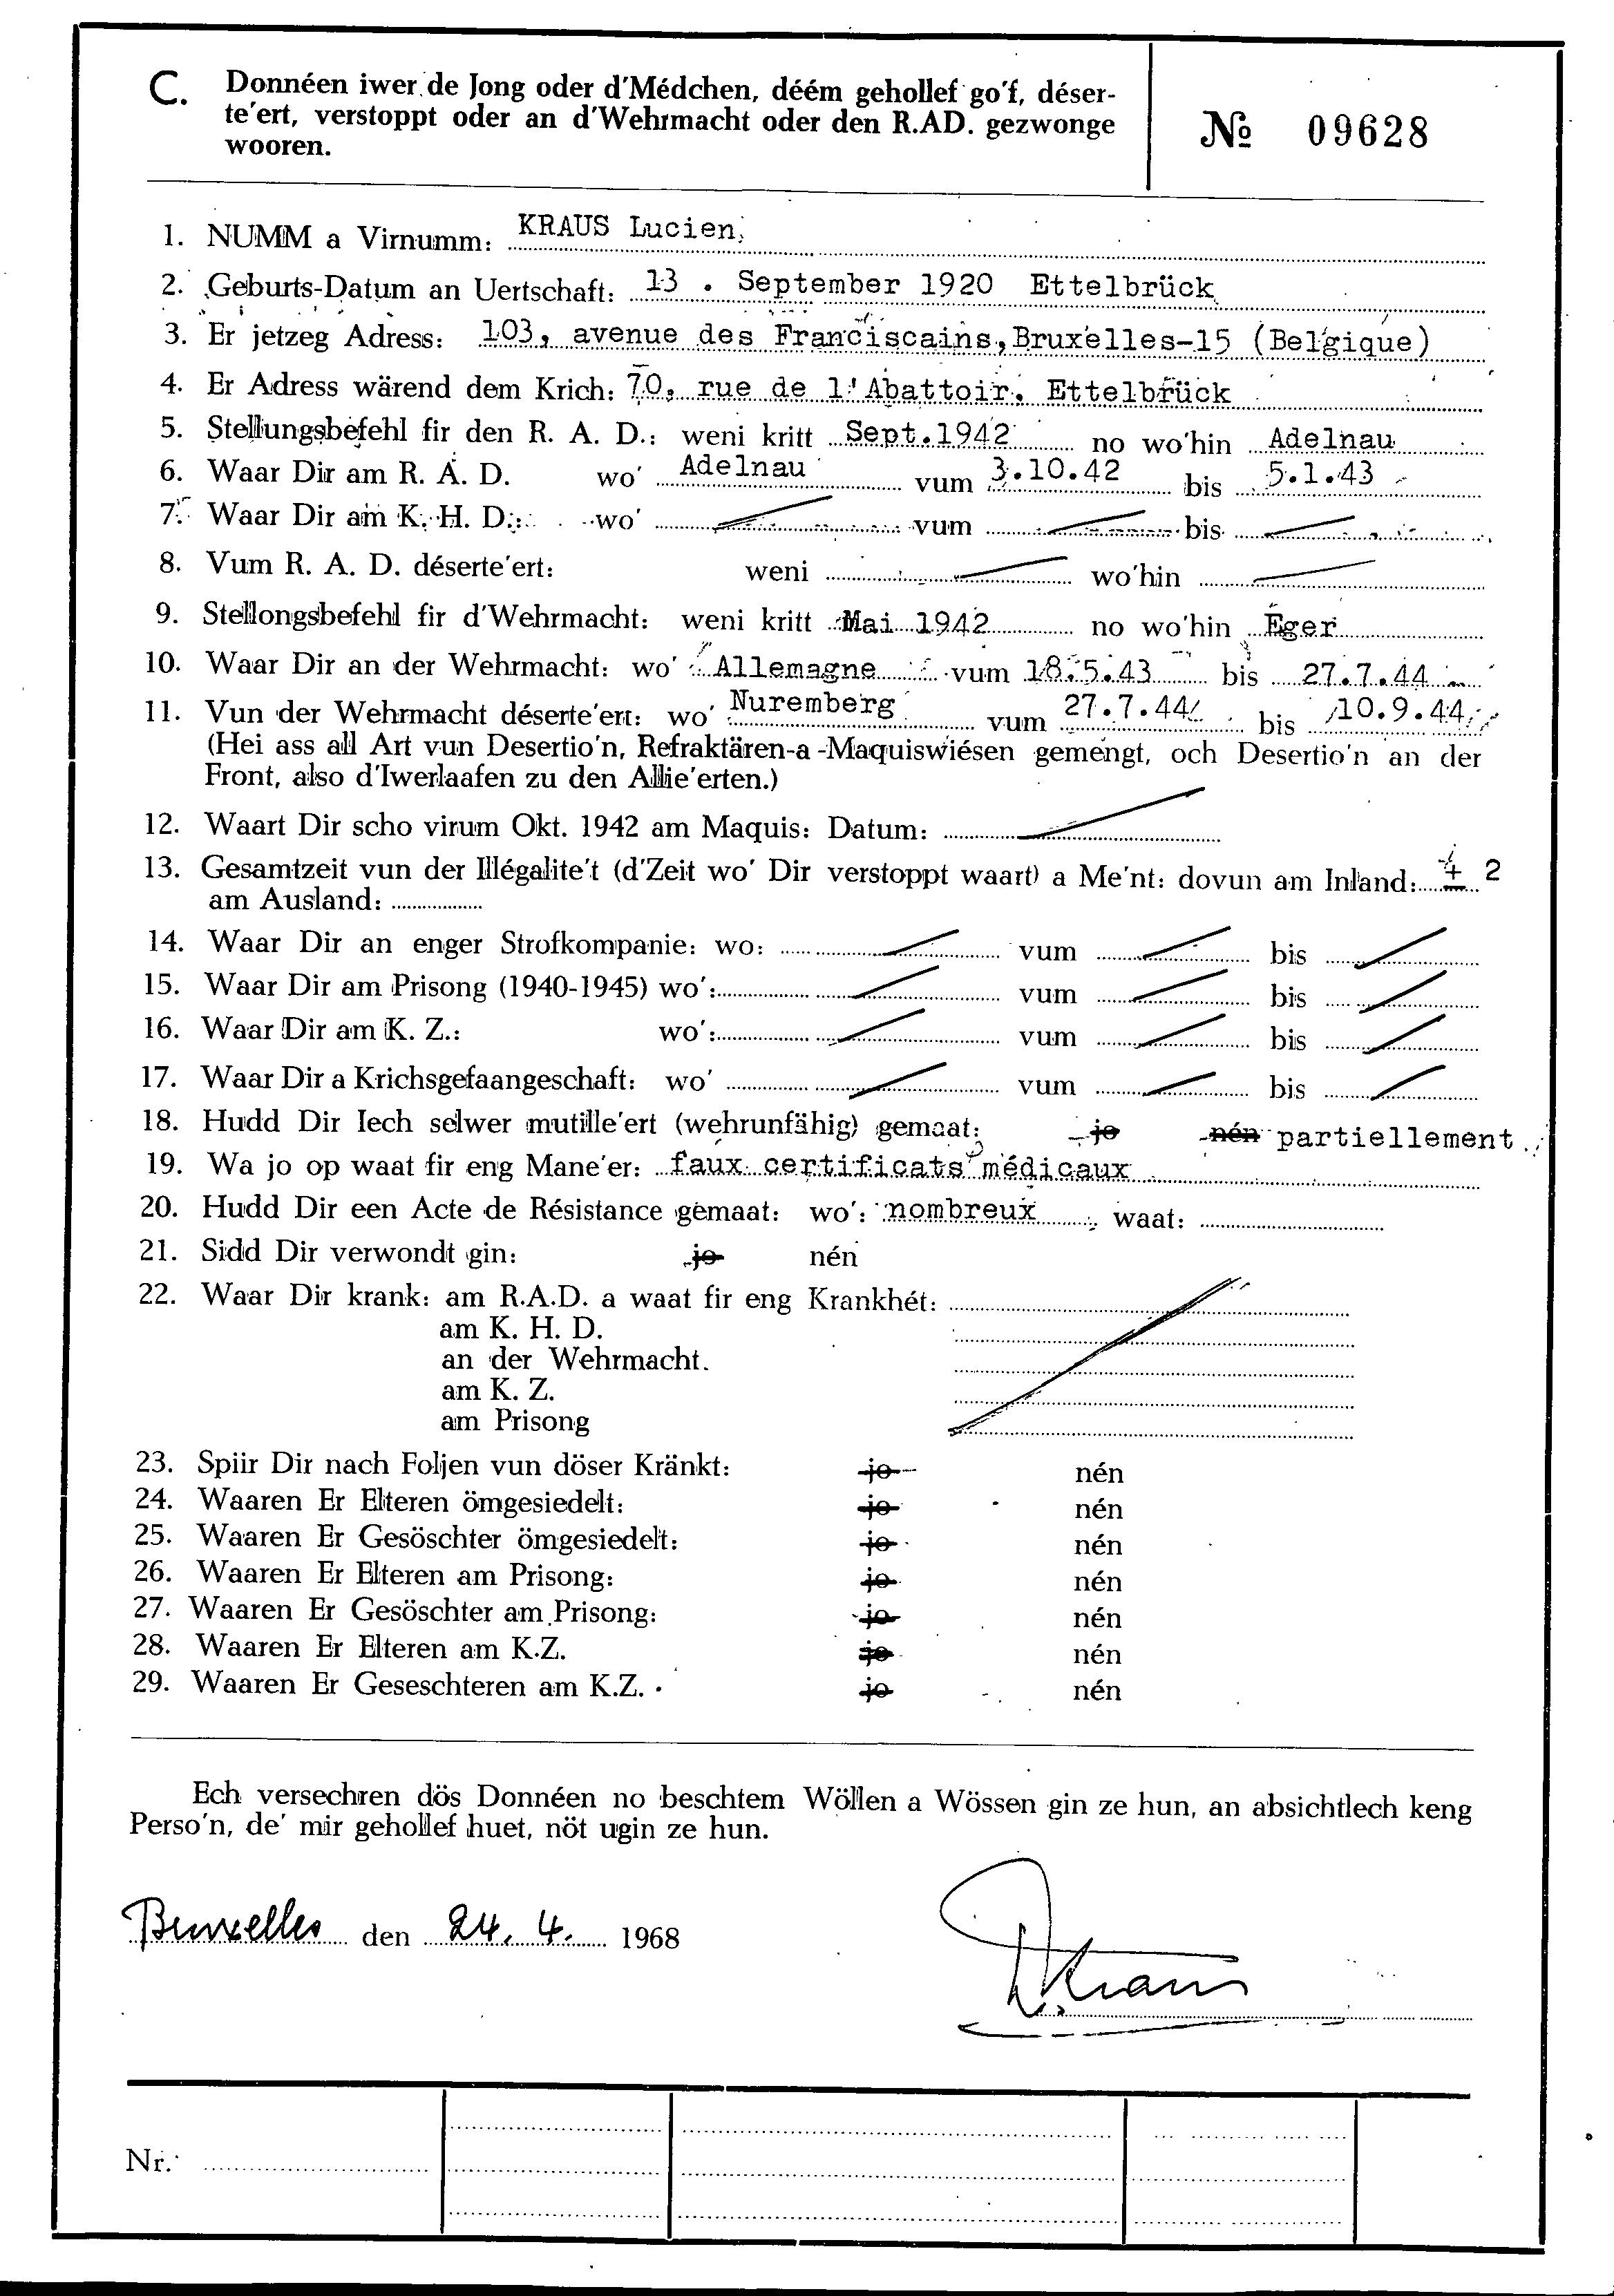 C. Donnéen iwer de Jong oder d'Médchen, déém gehollef go'f, déser-
te'ert, verstoppt oder an d'Wehrmacht oder den R.AD. gezwonge
wooren.
№ 09628
1. NUMM a Virnumm: KRAUS Lucien.
2. Geburts-Datum an Uertschaft: 13 . September 1920 Ettelbrück
3. Er jetzeg Adress: 103, avenue des Franciscains, Bruxelles-15 (Belgique)
4. Er Adress wärend dem Krich: 70, rue de l'Abattoir. Ettelbrück
5. Stellungsbefehl fir den R. A. D.: weni kritt Sept.1942 no wo'hin Adelnau
6. Waar Dir am R. A. D. wo' Adelnau vum 3.10.42 bis 5.1.43
7. Waar Dir am K. H. D.: wo' vum bis
8. Vum R. A. D. déserte'ert: weni wo'hin
9. Stellongsbefehl fir d'Wehrmacht: weni kritt Mai 1942 no wo'hin Eger
10. Waar Dir an der Wehrmacht: wo' Allemagne vum 18.5.43 bis 27.7.44
11. Vun der Wehrmacht déserte'ert: wo' Nuremberg vum 27.7.44 bis 10.9.44
(Hei ass all Art vun Desertio'n, Refraktären-a -Maquiswiésen gemengt, och Desertio'n an der
Front, also d'Iwerlaafen zu den Allie'erten.)
12. Waart Dir scho virum Okt. 1942 am Maquis: Datum:
13. Gesamtzeit vun der Illégalite't (d'Zeit wo' Dir verstoppt waart) a Me'nt: dovun am Inland: ± 2
am Ausland:
14. Waar Dir an enger Strofkompanie: wo: vum bis
15. Waar Dir am Prisong (1940-1945) wo': vum bis
16. Waar Dir am K. Z.: wo': vum bis
17. Waar Dir a Krichsgefaangeschaft: wo' vum bis
18. Hudd Dir Iech selwer mutille'ert (wehrunfähig) gemaat: jo nén partiellement.
19. Wa jo op waat fir eng Mane'er: faux certificats médicaux
20. Hudd Dir een Acte de Résistance gemaat: wo': nombreux , waat:
21. Sidd Dir verwondt gin: jo nén
22. Waar Dir krank: am R.A.D. a waat fir eng Krankhét:
am K. H. D.
an der Wehrmacht.
am K. Z.
am Prisong
23. Spiir Dir nach Foljen vun döser Kränkt: jo nén
24. Waaren Er Elteren ömgesiedelt: jo nén
25. Waaren Er Gesöschter ömgesiedelt: jo nén
26. Waaren Er Elteren am Prisong: jo nén
27. Waaren Er Gesöschter am Prisong: jo nén
28. Waaren Er Elteren am K.Z. jo nén
29. Waaren Er Geseschteren am K.Z. jo nén
Ech versechren dös Donnéen no beschtem Wöllen a Wössen gin ze hun, an absichtlech keng
Perso'n, de' mir gehollef huet, nöt ugin ze hun.
Bruxelles den 24. 4. 1968
L. Kraus
Nr.